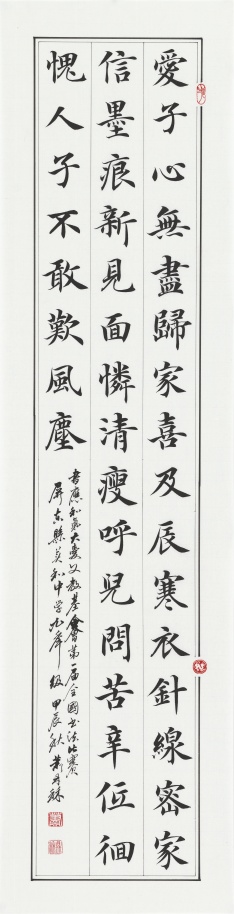 愛子心無盡歸家喜及辰寒衣針線密家
信墨痕新見面憐清瘦呼兒問苦辛低徊
愧人子不敢歎風塵
書應和氣大愛文教基金會第一屆全國書法比賽
屏東縣美和中學九年 級 甲辰秋